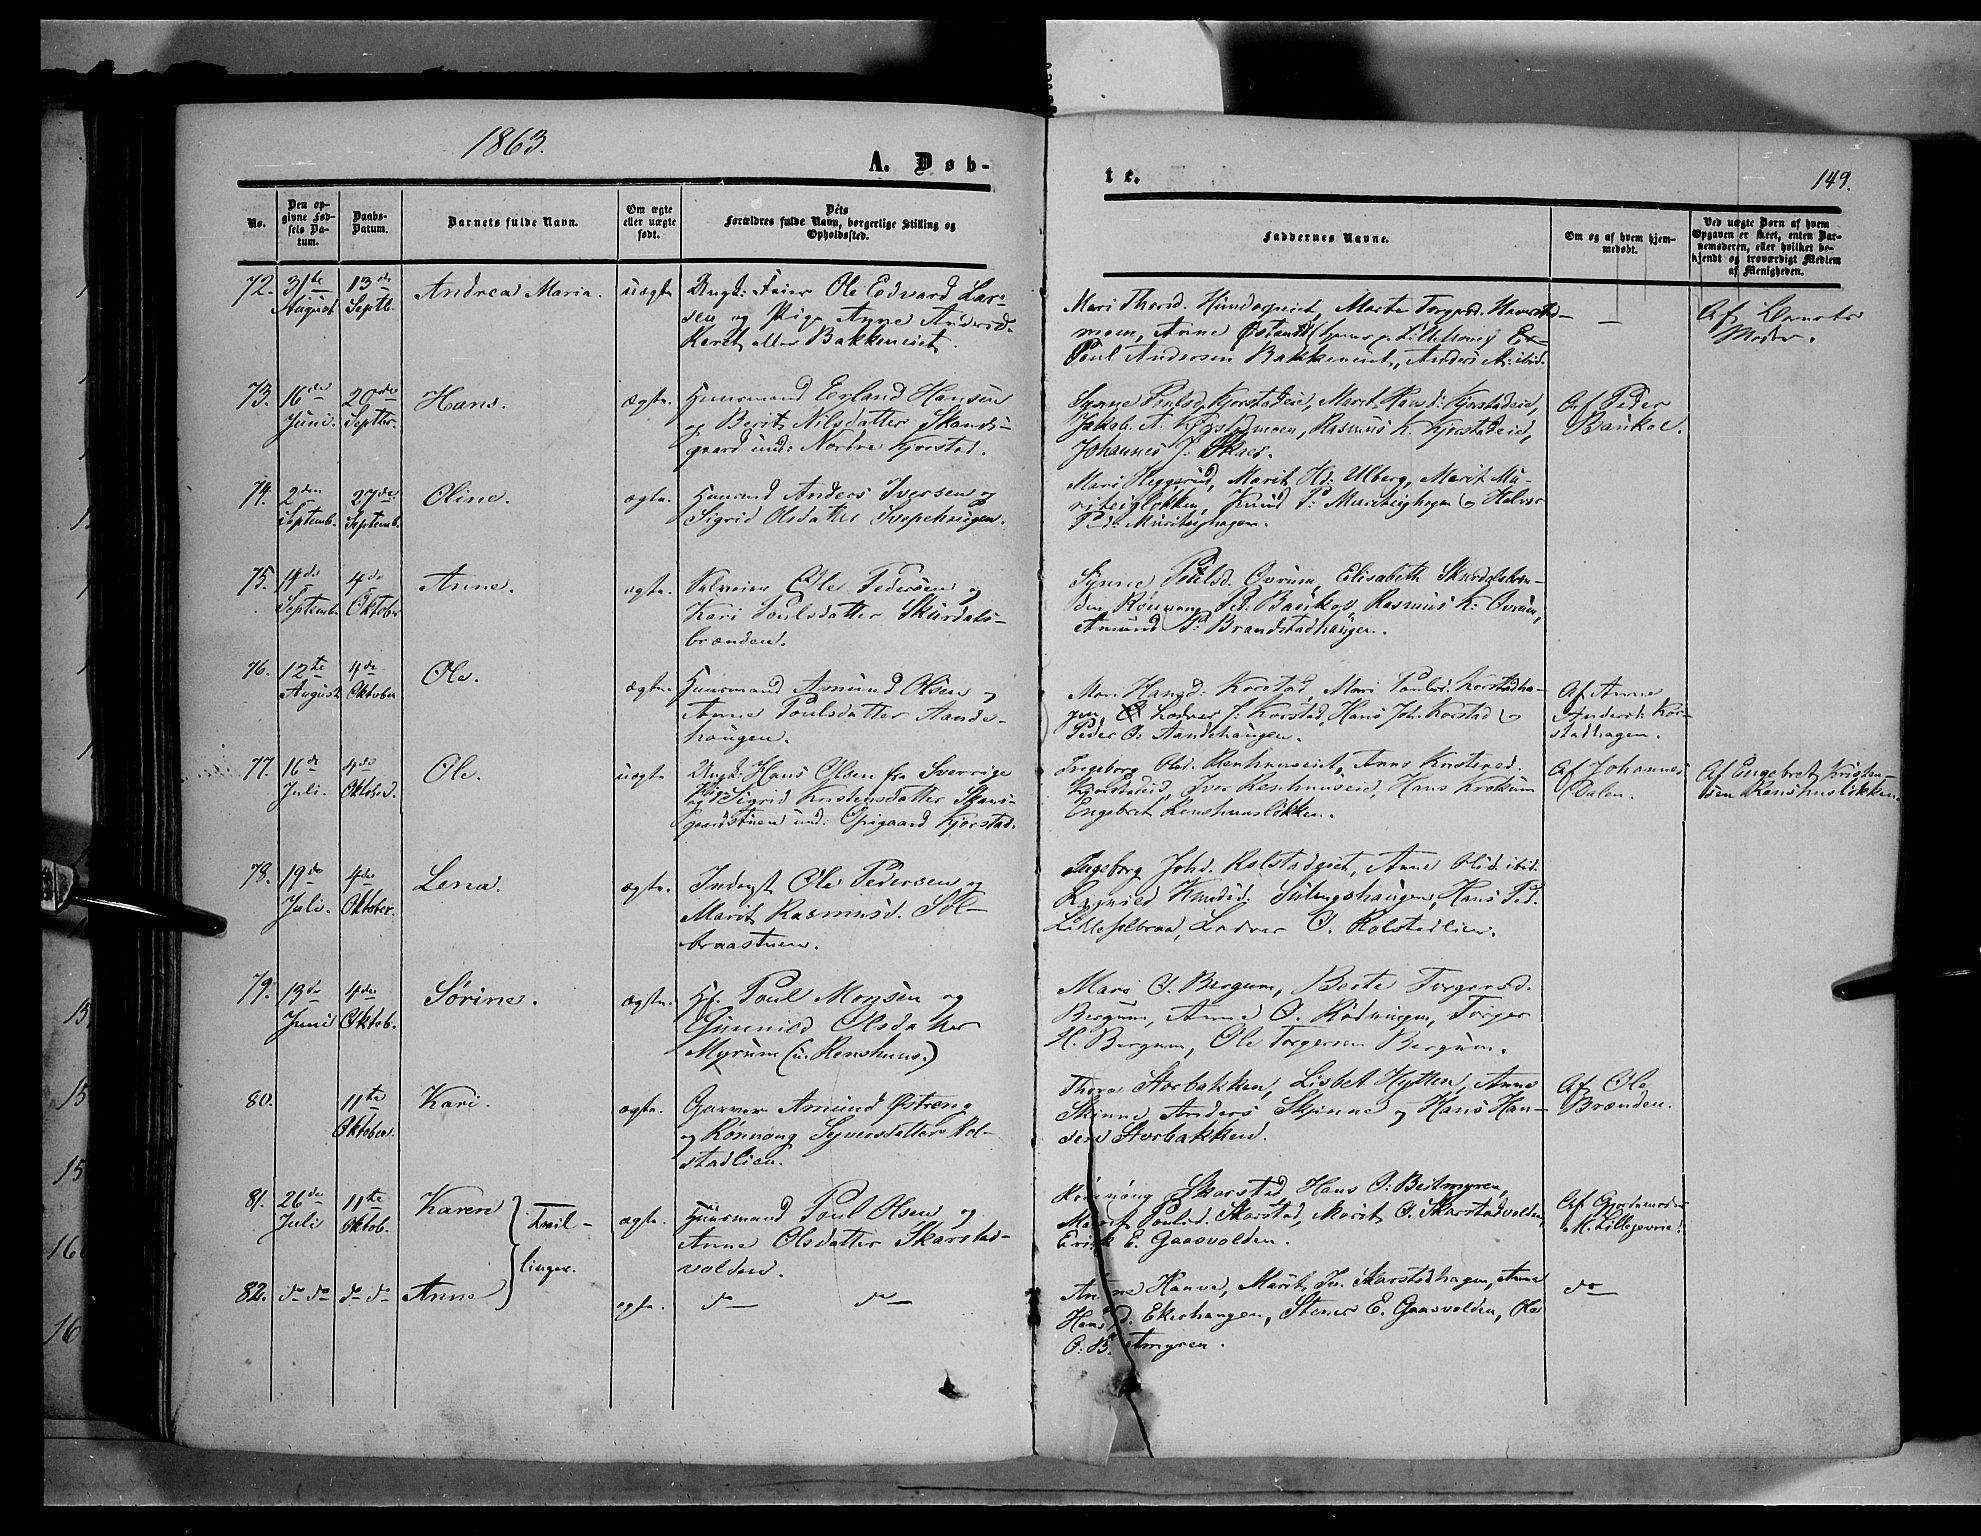 1863.
A. Døb-
te.
149.
No.
Den op-
givne Fød-
sels Da-
tum.
Daabs-
Datum.
Barnets fulde Navn.
Om ægte
eller uægte
født.
Dets
Forældres fulde Navn, borgerlige Stilling og
Opholdssted.
Faddernes Navne.
Om og af hvem hjem-
medøbt.
Ved uægte Børn af hvem
Opgaven er skeet, enten Bar-
nemoderen, eller hvilket be-
kjendt og troværdigt Medlem
af Menigheden.
72. 31te August 13de Septb. Andrea Maria. uægte
Ungk: Feier Ole Edvard Lar-
sen og Pige Anne Andersd.
Bakkeneiet.
Mari Thorsd. Hundorpeiet, Marte Torgersd.
moen, Anne
Poul Andersen Bakkeneiet, Anders A. ibid.
—
Af Barnets
Moder.
73. 16de Juni. 20de Septbr. Hans. ægte.
Huusmand Erland Hansen
og Berit Nilsdatter Skands-
gaard und: Nordre Kjorstad.
Synne Poulsd. Kjorstadeie, Marit Hansd: Kjorstadeie,
Jakob A. Rasmus K. Kjorstadeie,
Johannes J. Skaar.
Af Peder
Baukol.
74. 2den Septemb. 27de Septemb. Oline. ægte.
Huusmand Anders Iversen og
Sigrid Olsdatter Svepehaugen.
Mari Heggerud, Marit Hd: Ulberg, Marit Mu-
Knud P: og Halvor
75. 14de Septemb. 4de Oktober Anne. ægte.
Selveier Ole Pedersen og
Kari Poulsdatter Skurdals-
brænden.
Synne Poulsd. Øvrum, Elisabeth Skurdalsbræn-
den, Rønnaug Pd: Baukol, Rasmus K: Øvrum,
Amund P: Brandstadhaugen.
76. 12te August 4de Oktober Ole. ægte.
Huusmand Amund Olsen og
Anne Poulsdatter Aande-
haugen.
Mari Hansd: Korstad, Mari Poulsd. Korstadha-
gen, Lodver J: Korstad, Hans Joh. Korstad og
Peder O: Aandehaugen.
Af Anne
Andersd: Kor-
stadhagen.
77. 16de Juli. 4de Oktober. Ole. uægte
Ungk: Hans Olsen fra Sverrige
og Sigrid Kristensdatter Skans-
gaardstuen und: Opigaard Kjorstad.
Ingeborg Olsd. Renshuuseiet, Anne Kristensd.
Kjorstadeie, Iver Renshuuseie, Hans Kroksum
Engebret Renshuusløkken.
Af Johannes
Dalen.
Af Engebret Kristen-
sen Renshusløkken.
78. 19de Juli. 4de Oktober. Lena. ægte.
Inderst Ole Pedersen og
Marit Rasmusd. Sol-
braastuen.
Ingeborg Johd. Rolstadeiet, Anne Olsd. ibid.
Ragnild Knudsd: Hans Ped.
Lillesolbraa, Lodver O. Rolstadlien.
79. 13de Juni 4de Oktob. Sørine. ægte.
Hf. Poul Monsen og
Gunnild Olsdatter
Myrum (u. Renshuus.)
Mari O. Bergum, Berte Torgersd.
Bergum, Anne O. Rødningen, Torger
H. Bergum, Ole Torgersen Bergum.
80. 11te Oktober. Kari. ægte.
Garver Amund Østreng
og Rønnaug Syversdatter Rol-
stadlien.
Thora Storbakken, Lisbet Hytten, Anne
Skinne, Anders Skjinne og Hans Han-
sen Storbakken.
Af Ole
Brænden.
81. 26de Juli 11te Oktob. Karen Tvil- ægte.
Huusmand Poul Olsen og
Anne Olsdatter Skarstad-
volden.
Rønnaug Skarstad, Hans O: Beitmyren,
Marit Poulsd. Skarstad, Marit O. Skarstadvolden,
Erik E. Gaasvolden.
Af Gjordemoder
82. do do do do Anne linger. ægte. do— do—
Anne Haave, Marit Skarstadhagen, Anne
Hansd. Ekerhaugen, Stener E. Gaasvolden, Ole
O: Beitmyren.
do